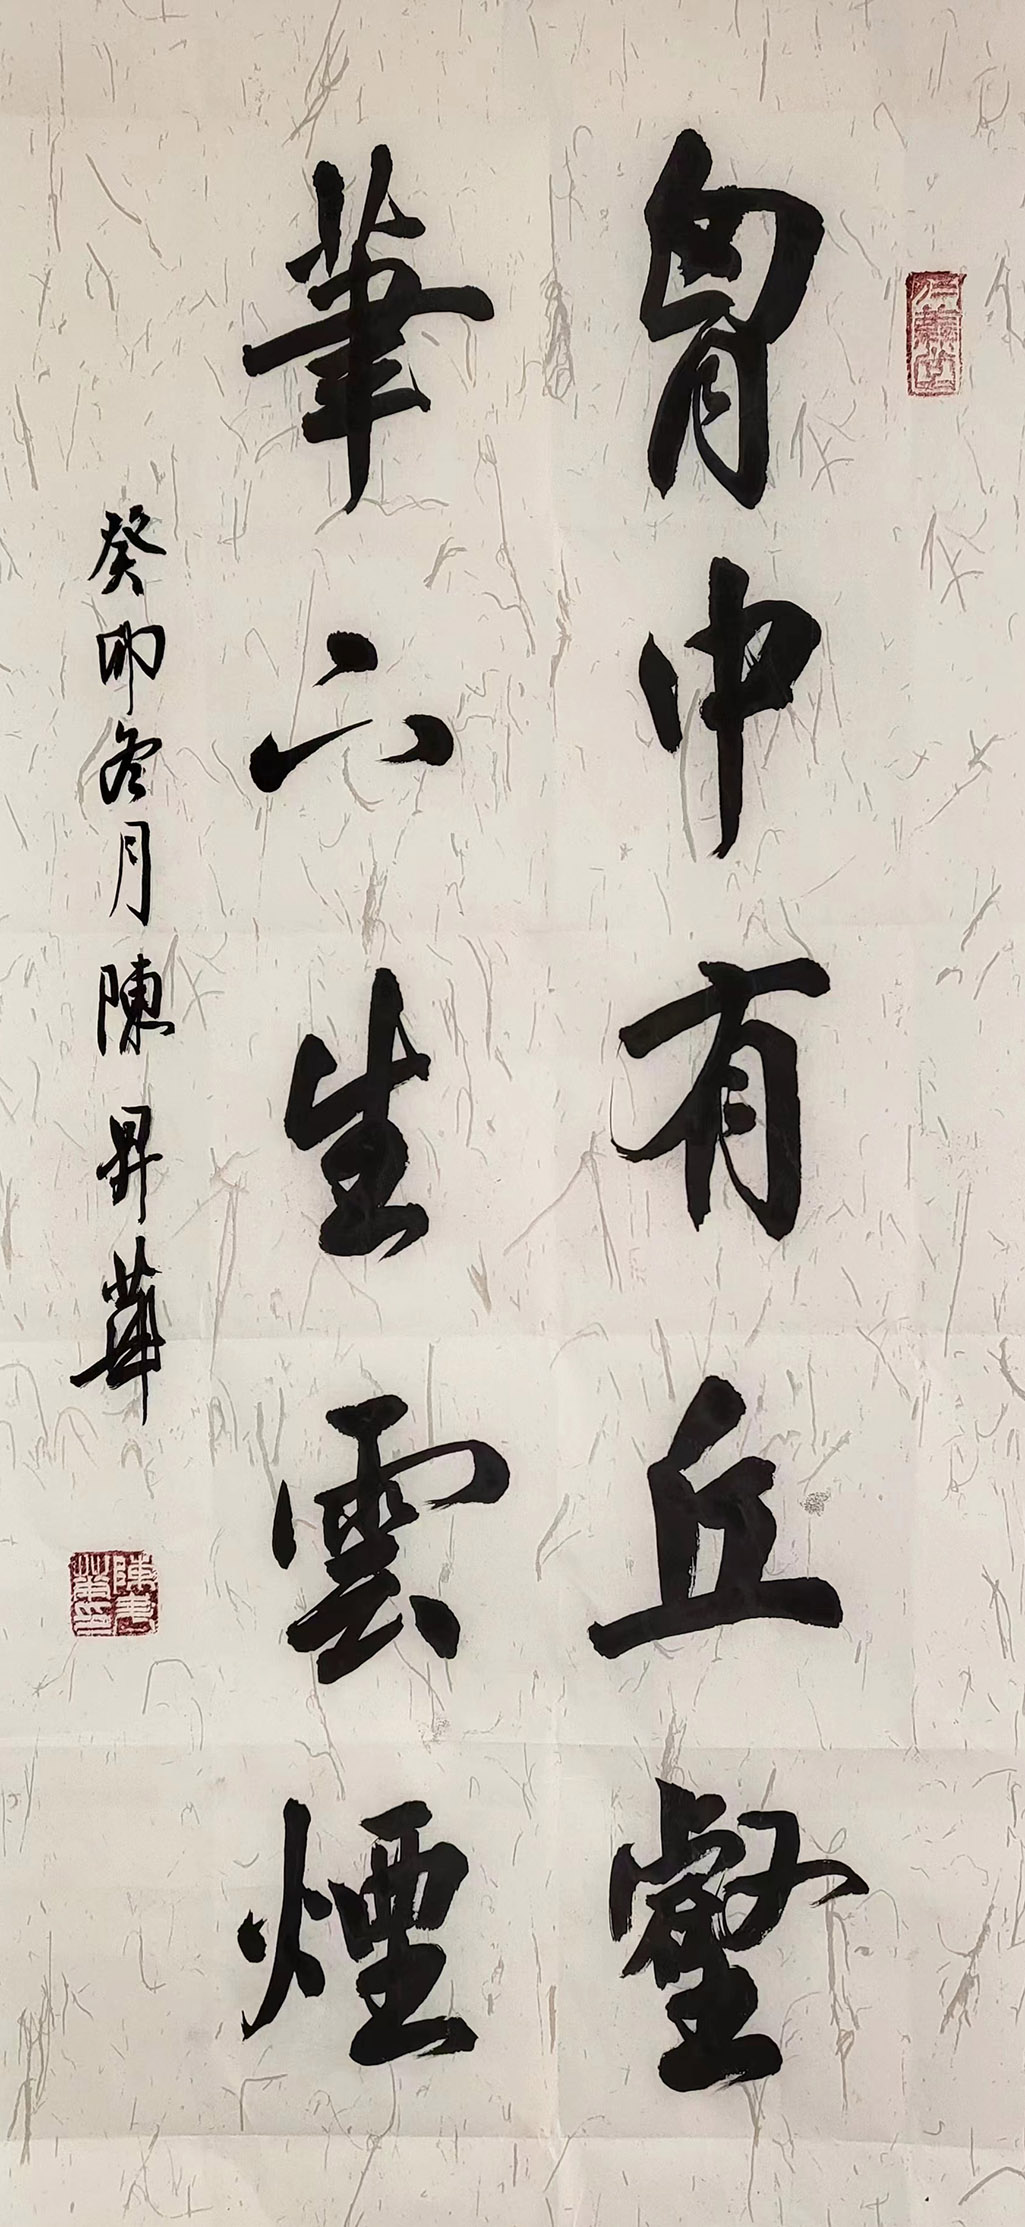 胷中有丘壑
筆下生雲煙
癸卯冬月陳昇華